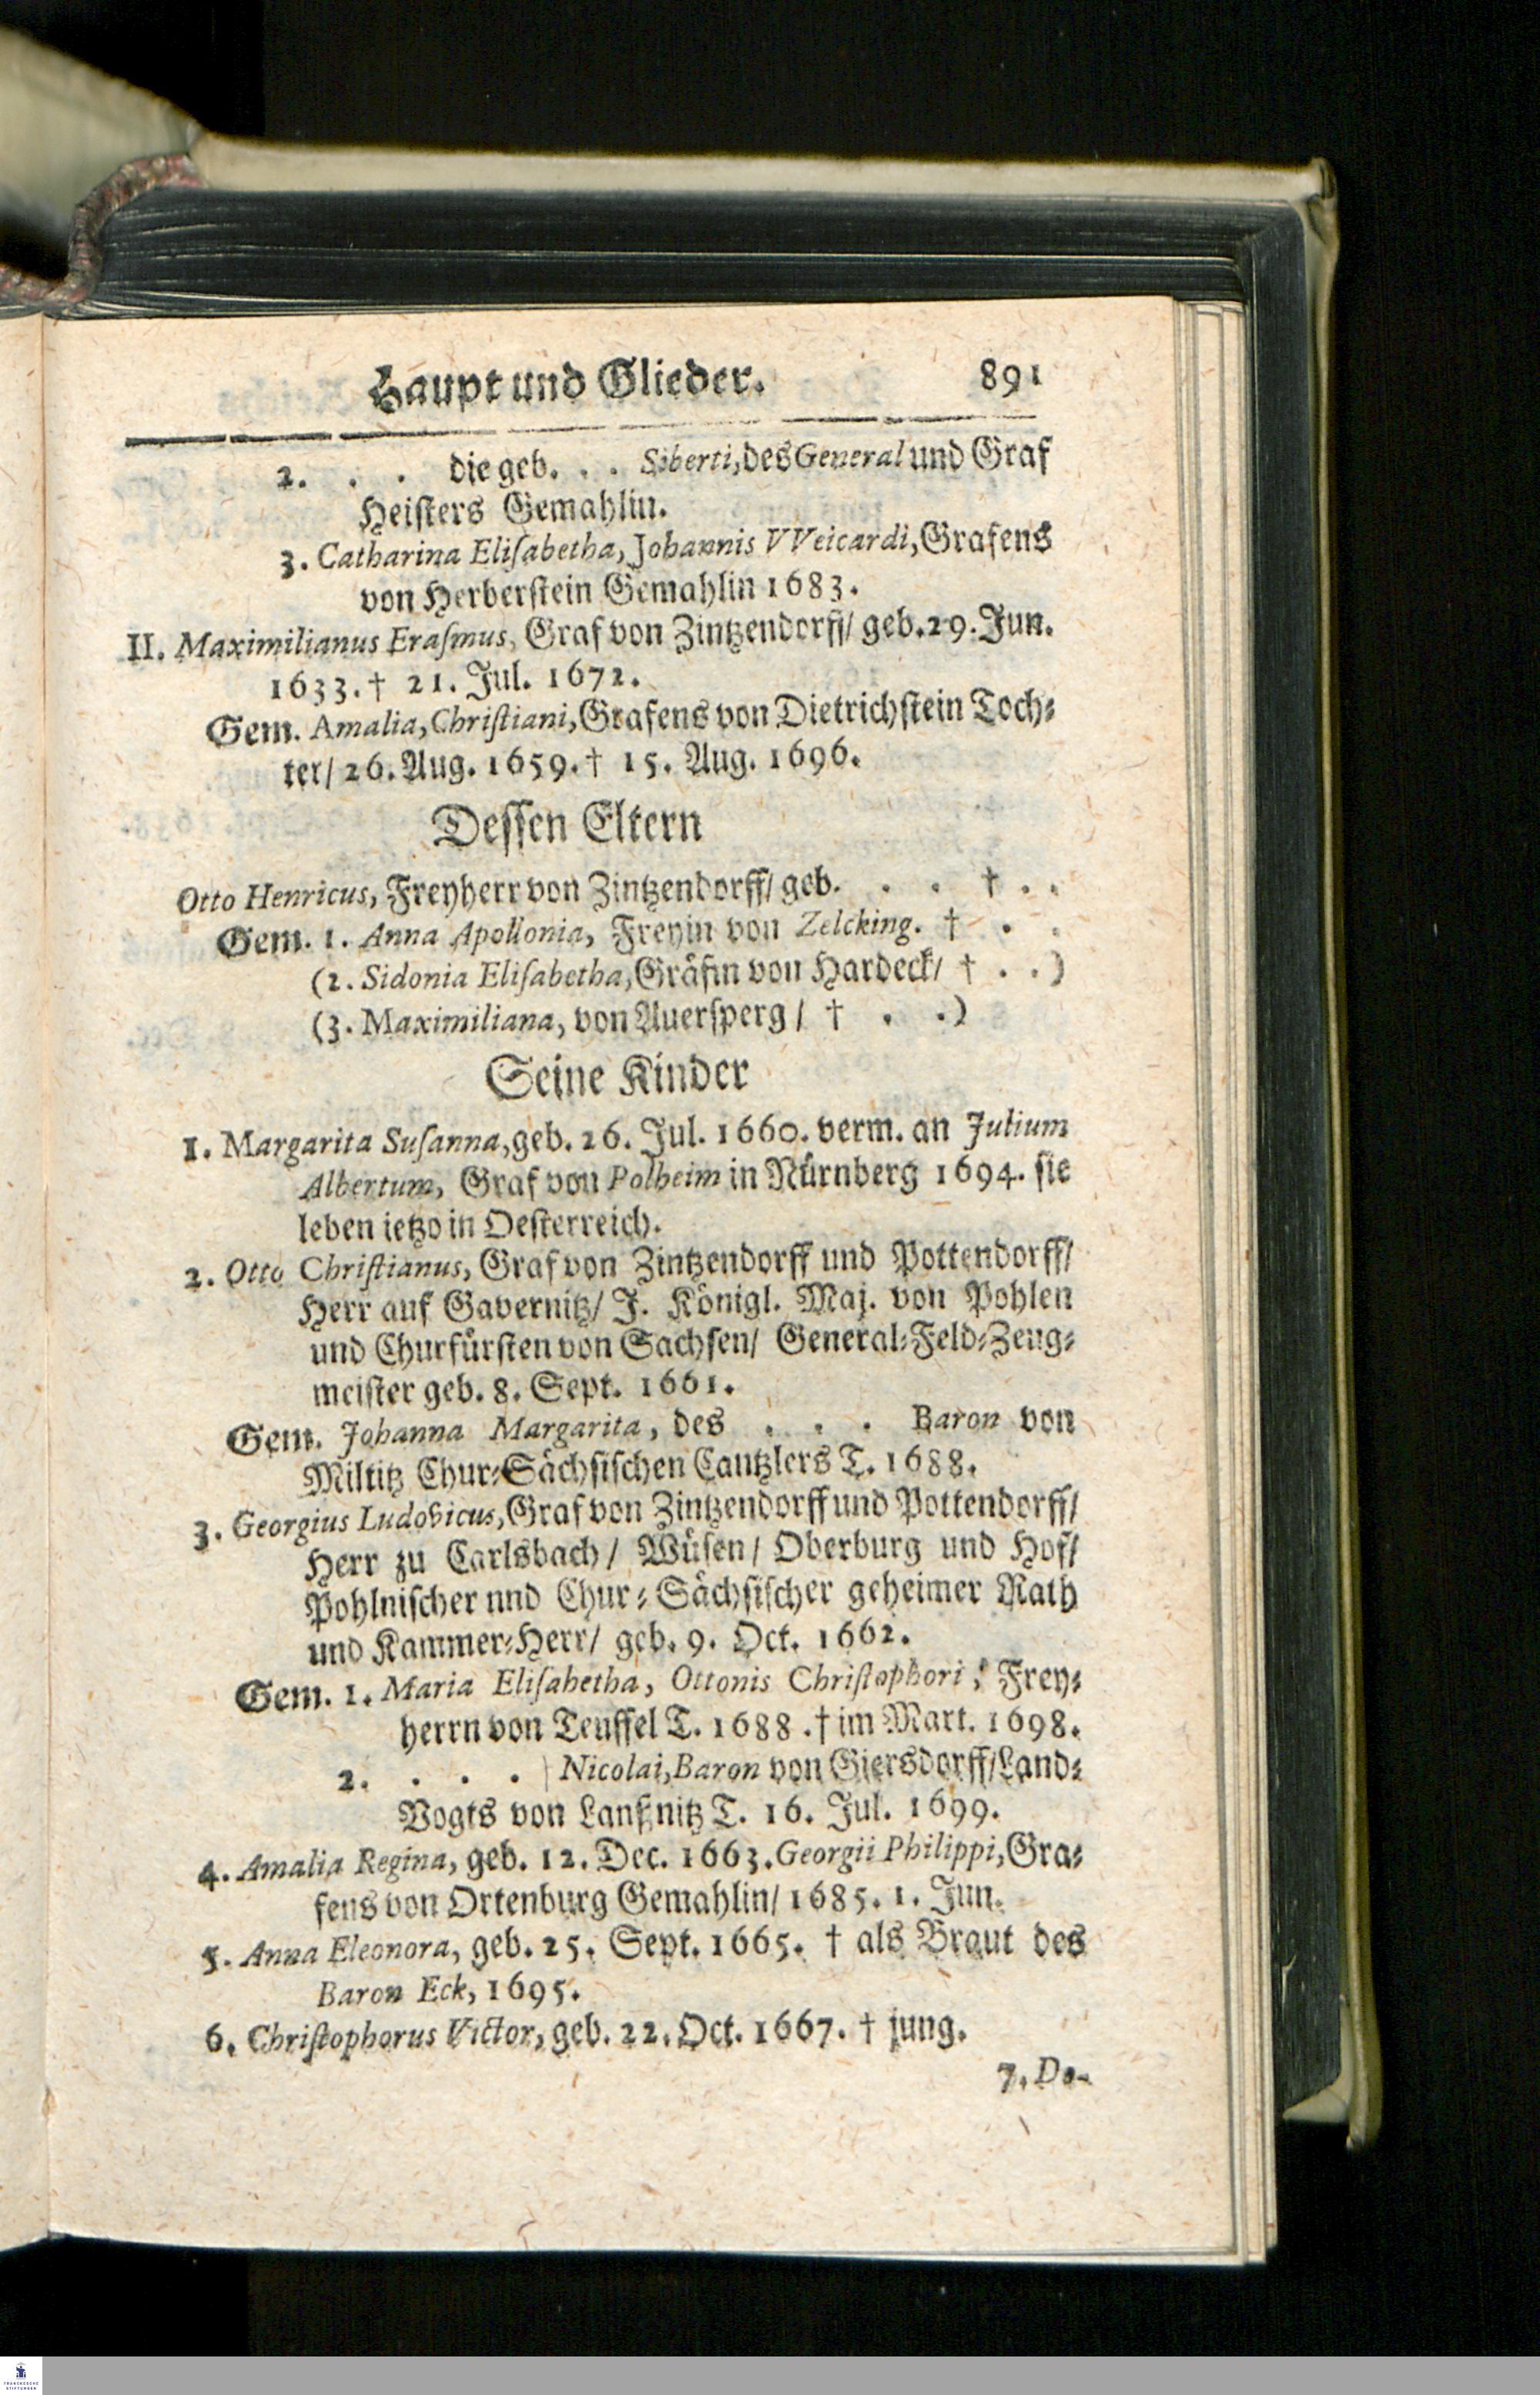 Haupt und Glieder. 891
2. . . die geb. . . Siberti, des General und Graf
Heisters Gemahlin.
3. Catharina Elisabetha, Johannis VVeicardi, Grafens
von Herberstein Gemahlin 1683.
II. Maximilianus Erasmus, Graf von Zintzendorff/ geb. 29. Jun.
1633. † 21. Jul. 1672.
Gem. Amalia, Christiani, Grafens von Dietrichstein Toch-
ter/ 26. Aug. 1659. † 15. Aug. 1696.
Dessen Eltern
Otto Henricus, Freyherr von Zintzendorff/ geb. . . † . .
Gem. 1. Anna Apollonia, Freyin von Zelcking. † . .
(2. Sidonia Elisabetha, Gräfin von Hardeck/ † . .)
(3. Maximiliana, von Auersperg / † . .)
Seine Kinder
1. Margarita Susanna, geb. 26. Jul. 1660. verm. an Julium
Albertum, Graf von Polheim in Nürnberg 1694. sie
leben ietzo in Oesterreich.
2. Otto Christianus, Graf von Zintzendorff und Pottendorff/
Herr auf Gavernitz/ J. Königl. Maj. von Pohlen
und Churfürsten von Sachsen/ General-Feld-Zeug-
meister geb. 8. Sept. 1661.
Gem. Johanna Margarita, des . . . Baron von
Miltitz Chur-Sächsischen Cantzlers T. 1688.
3. Georgius Ludovicus, Graf von Zintzendorff und Pottendorff/
Herr zu Carlsbach/ Wüsen/ Oberburg und Hof/
Pohlnischer nnd Chur-Sächsischer geheimer Rath
und Kammer-Herr/ geb. 9. Oct. 1662.
Gem. 1. Maria Elisabetha, Ottonis Christophori, Frey-
herrn von Teuffel T. 1688. † im Mart. 1698.
2. . . . Nicolai, Baron von Giersdorff/ Land-
Vogts von Lanßnitz T. 16. Jul. 1699.
4. Amalia Regina, geb. 12. Dec. 1663. Georgii Philippi, Gra-
fens von Ortenburg Gemahlin/ 1685. 1. Jun.
5. Anna Eleonora, geb. 25. Sept. 1665. † als Braut des
Baron Eck, 1695.
6. Christophorus Victor, geb. 22. Oct. 1667. † jung.
7. Do-
FRANCKESCHE
STIFTUNGEN